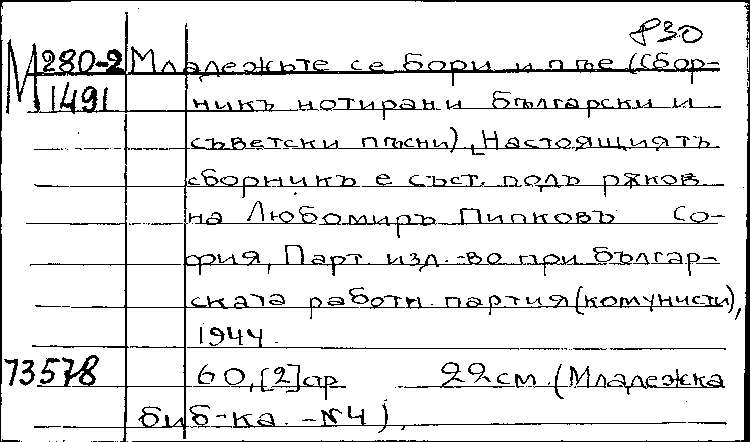 830
М 280-2 Младежьте се бори и пѣе (сбор-
1491 никъ нотирани български и
съветски пѣсни), [Настоящиятъ
сборникъ е съст. подъ рѫков.
на Любомиръ Пипковъ Со-
фия, Парт. изд.-во при българ-
ската работн. партия (комунисти),
1944.
73578 60,[2]стр 22см. (Младежка
биб-ка. -N4),